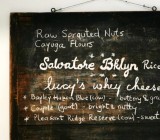 Raw Sprouted Nuts
Cayuga Flours
Salvatore Bklyn Rico
Lucy's whey cheese
Bayley Hazen Blue (cow) - buttery & gra
Couple (goat) - bright & nutty
Pleasant Ridge Reserve (cow) - sweet